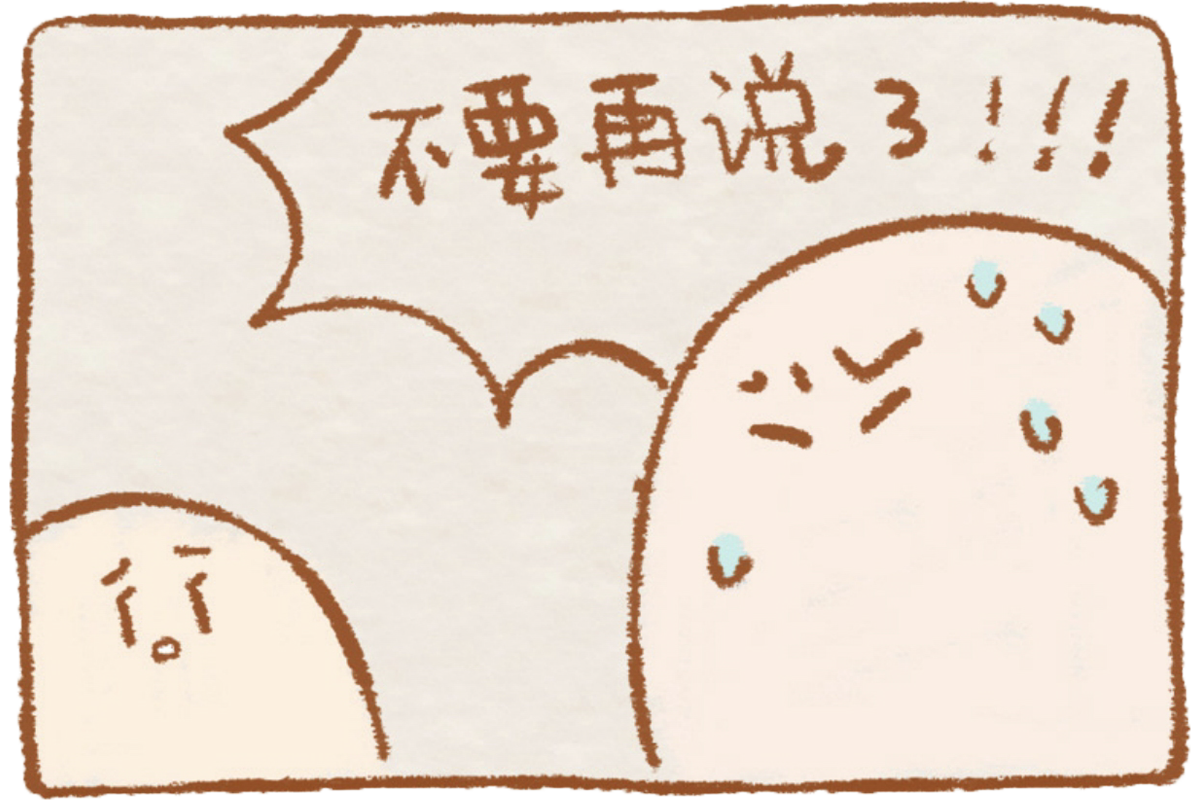 不要再说了!!!